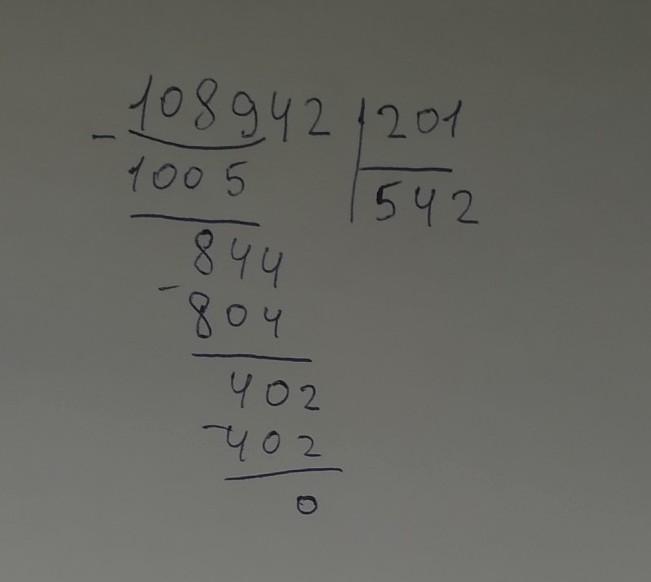 - 108942 | 201
1005 | 542
844
- 804
402
- 402
0